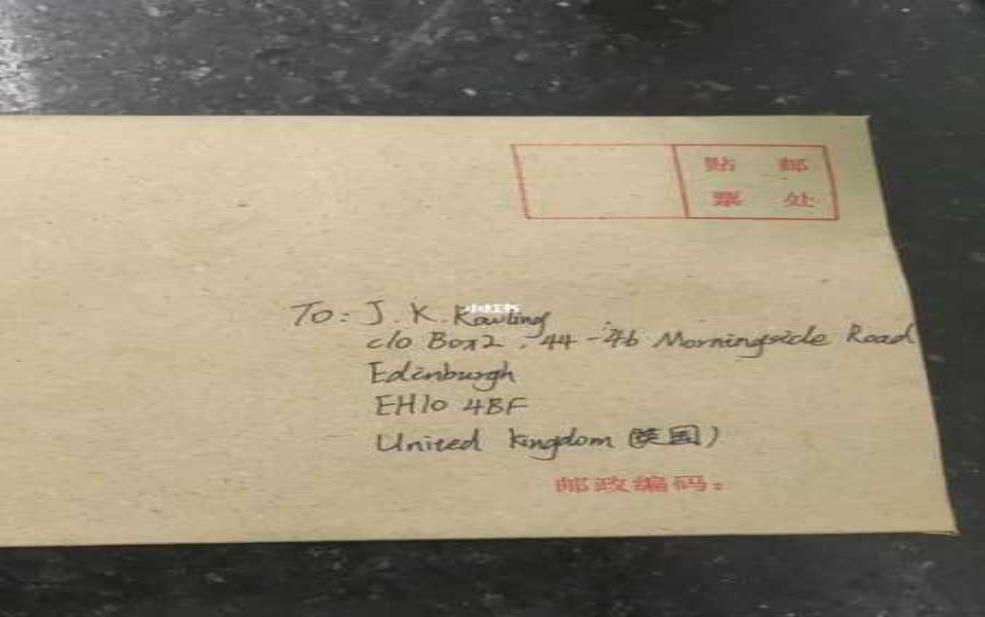 贴 邮
票 处
小红书
To: J. K. Rowling
c/o Box2, 44-46 Morningside Road
Edinburgh
EH10 4BF
United Kingdom (英国)
邮政编码: